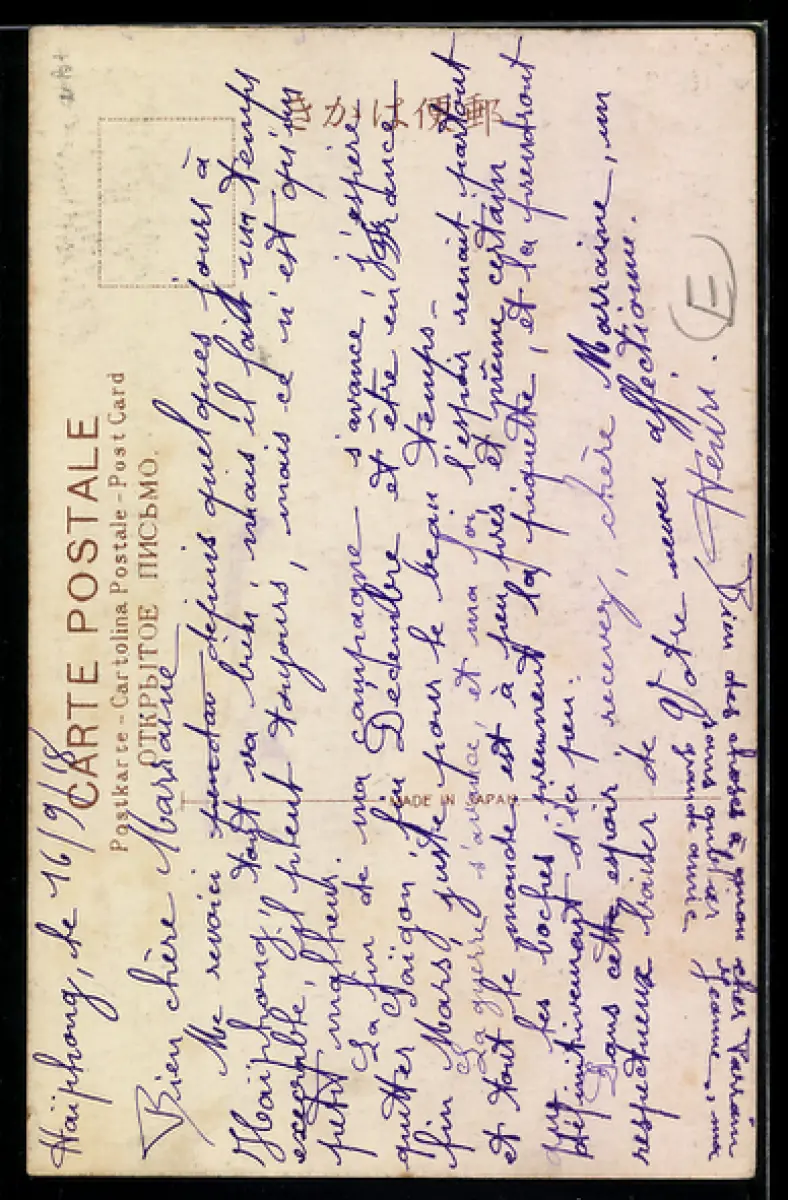 郵便はかき
CARTE POSTALE
Postkarte - Cartolina Postale - Post Card
ОТКРЫТОЕ ПИСЬМО.
MADE IN JAPAN
Haïphong, le 16/9/18
Bien chère Marraine
Me revoici pendan depuis quelques jours à
Haïphong, tout va bien, mais il fait un temps
execrable, il pleut toujours, mais ce n'est qu'un
petit malheur.
La fin de ma campagne s'avance, j'espère
quitter Saïgon fin Decembre et être en France
fin Mars, juste pour le beau temps -
La guerre s'avance, et ma foi, l'espoir renait partout
et tout le monde est à peu près et même certain
que les boches prennent la piquette, et la prendront
définitivement d'ici peu.
Dans cette espoir, recevez, chère Marraine, un
respectueux baiser de Votre neveu affectionné.
Henri.
E
Bien des choses à mon cher Parrain
sans oublier Jeanne, ma
grande amie